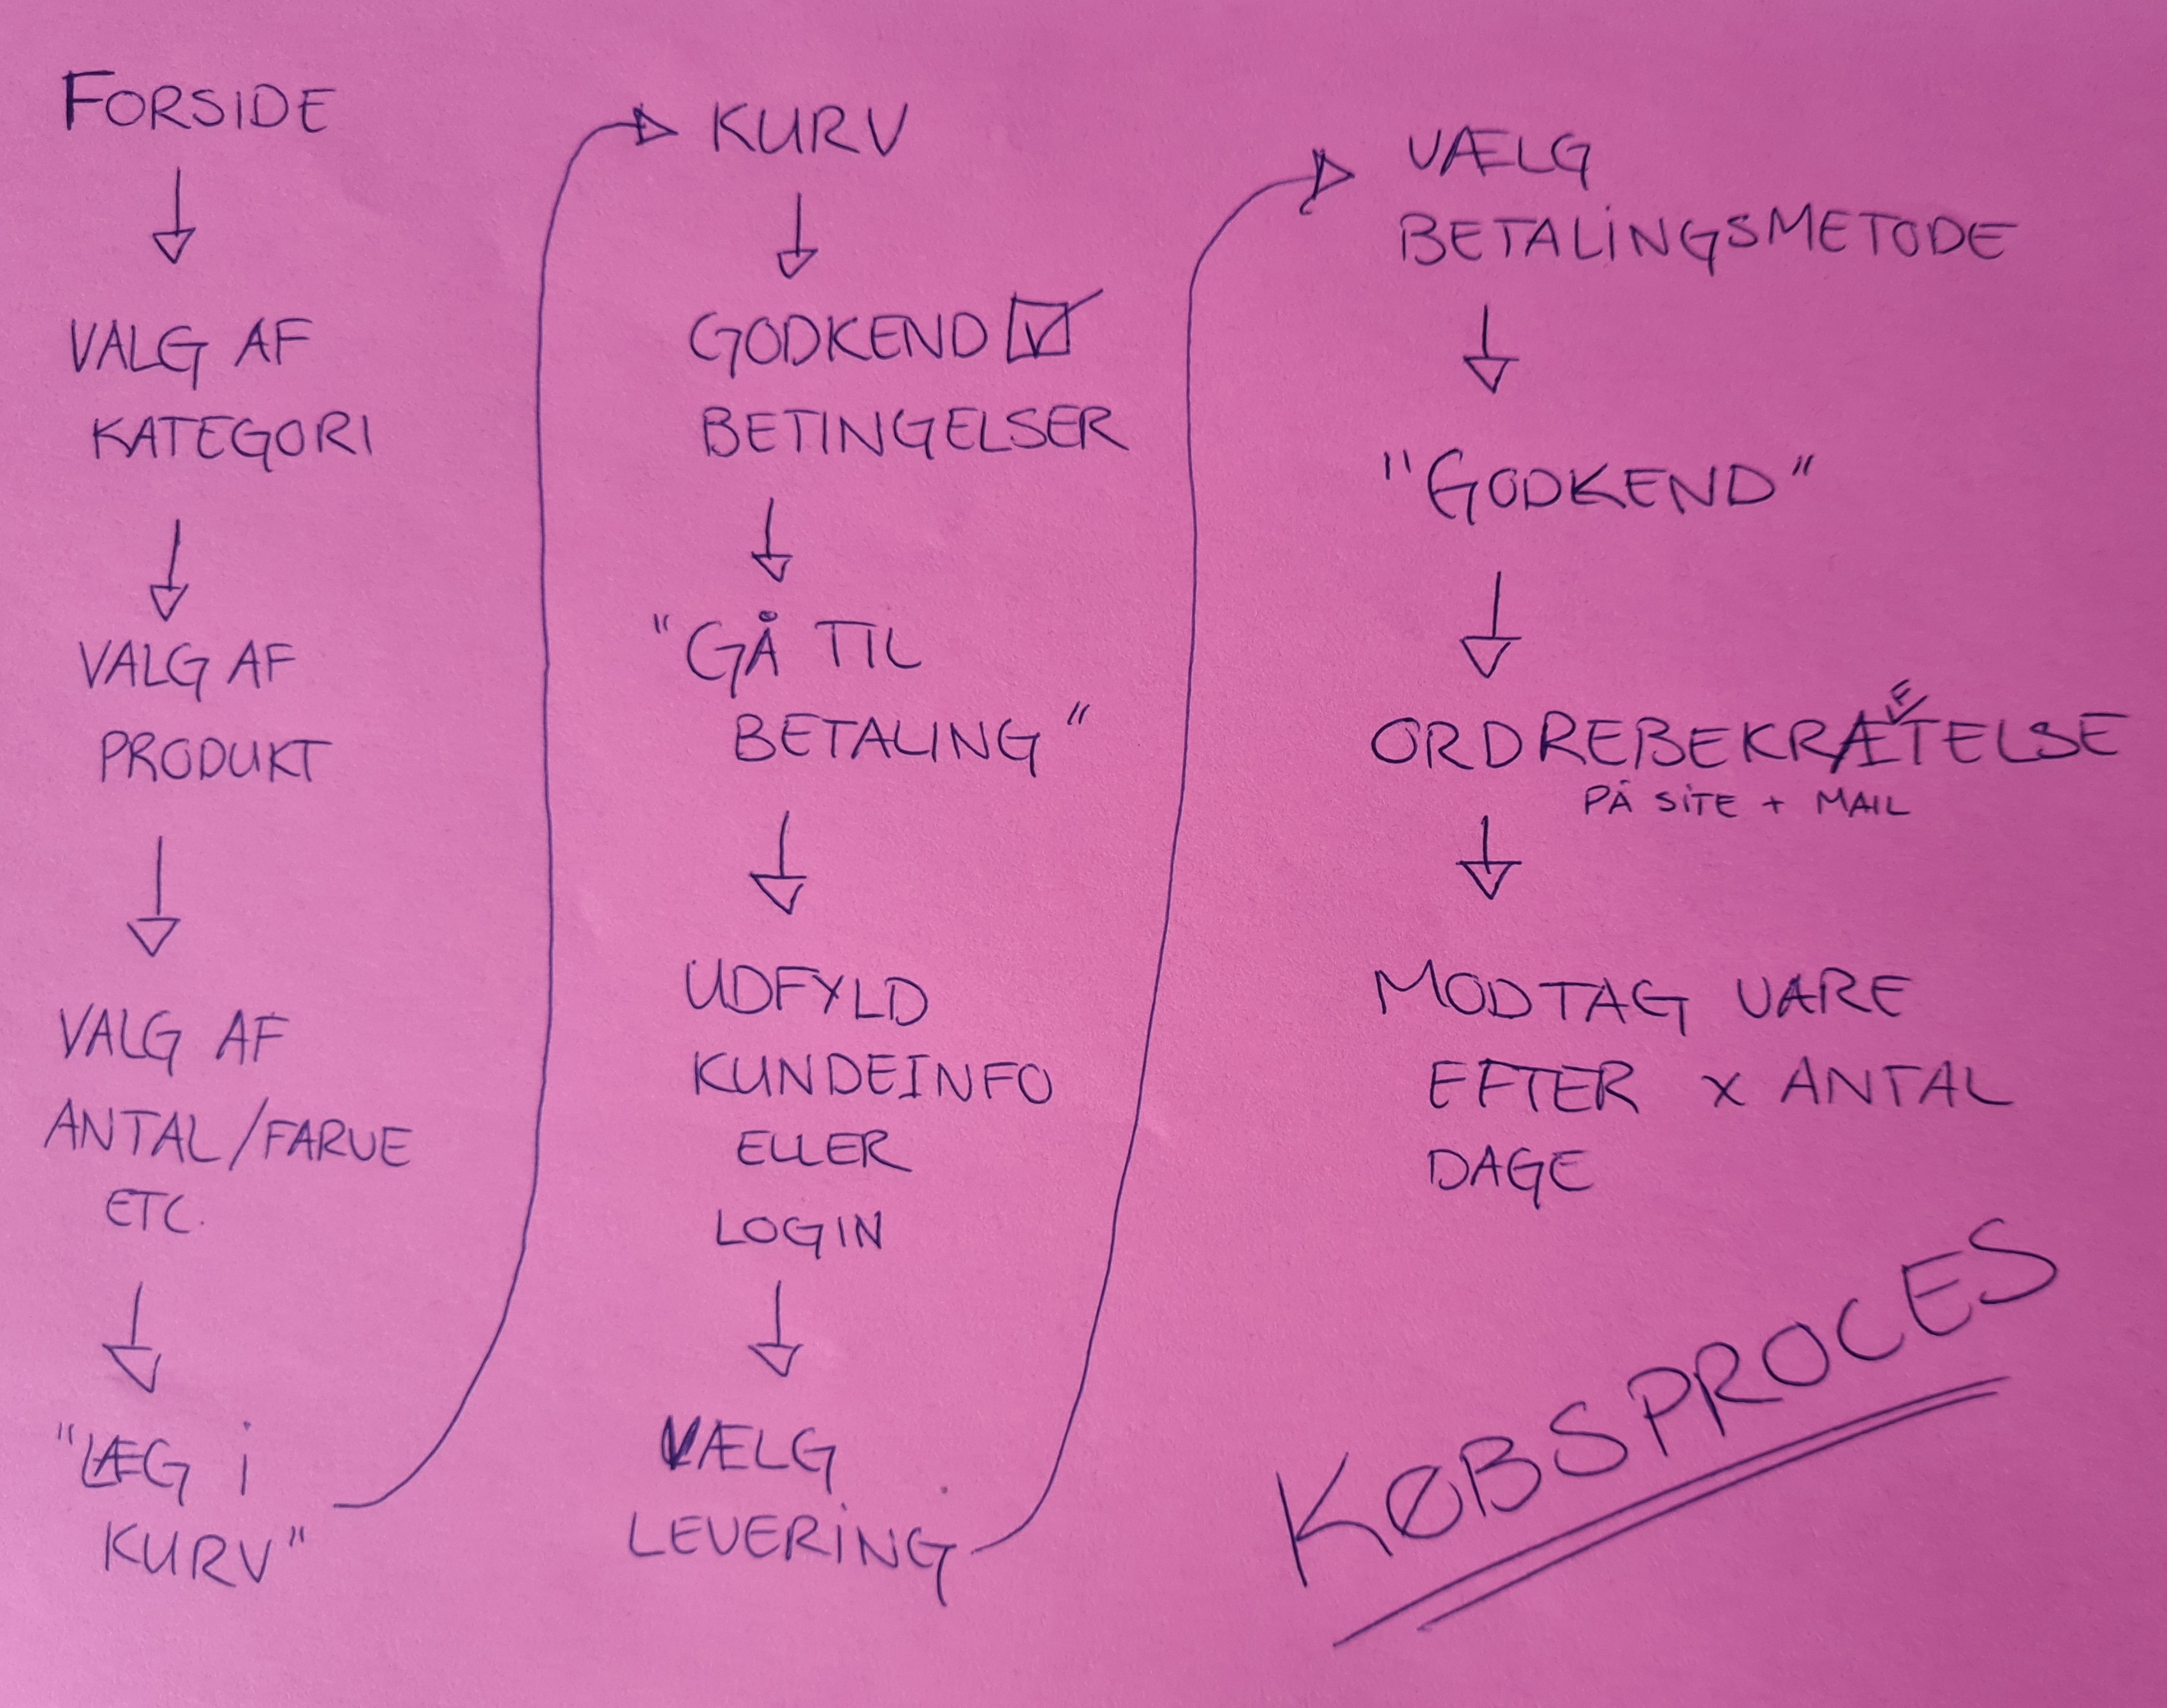 FORSIDE
VALG AF
KATEGORI
VALG AF
PRODUKT
VALG AF
ANTAL/FARVE
ETC.
"LÆG i
KURV"
KURV
GODKEND ☑
BETINGELSER
"GÅ TIL
BETALING"
UDFYLD
KUNDEINFO
ELLER
LOGIN
VÆLG
LEVERING
VÆLG
BETALINGSMETODE
"GODKEND"
ORDREBEKRÆFTELSE
PÅ SITE + MAIL
MODTAG VARE
EFTER X ANTAL
DAGE
KØBSPROCES